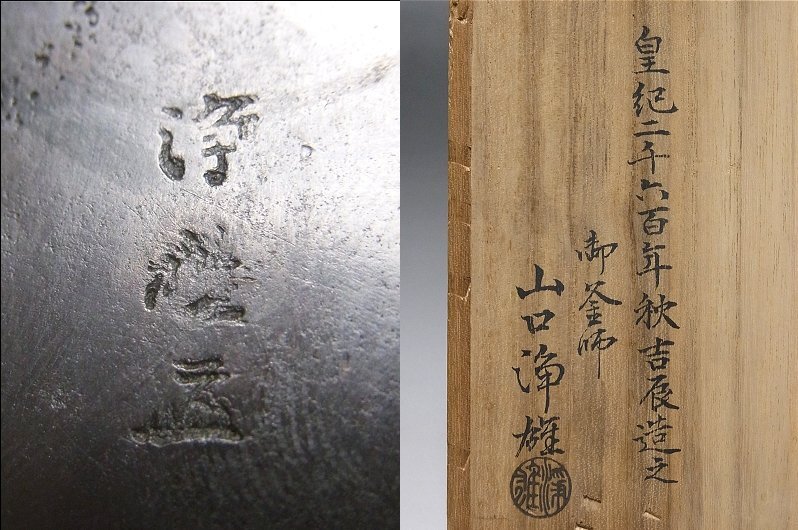 浄雄造
皇紀二千六百年秋吉辰造之
御釜師
山口浄雄
浄雄